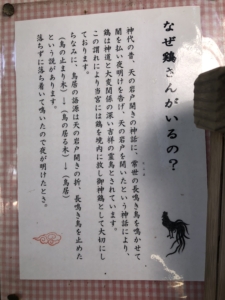 なぜ鶏さんがいるの？
神代の昔、天の岩戸開きの神話に、常世の長鳴き鳥を鳴かせて
闇を払い夜明けを告げ、天の岩戸を開いたという神話により、
鶏は神道と大変関係の深い吉祥の霊鳥とされています。
この謂れにより当宮には鶏を境内に放し御神鶏として大切にし
ております。
ちなみに、鳥居の語源は天の岩戸開きの折、長鳴き鳥を止めた
（鳥の止まり木）→（鳥の居る木）→（鳥居）
という説があります。
落ちずに落ち着いて鳴いたので夜が明けたとき。